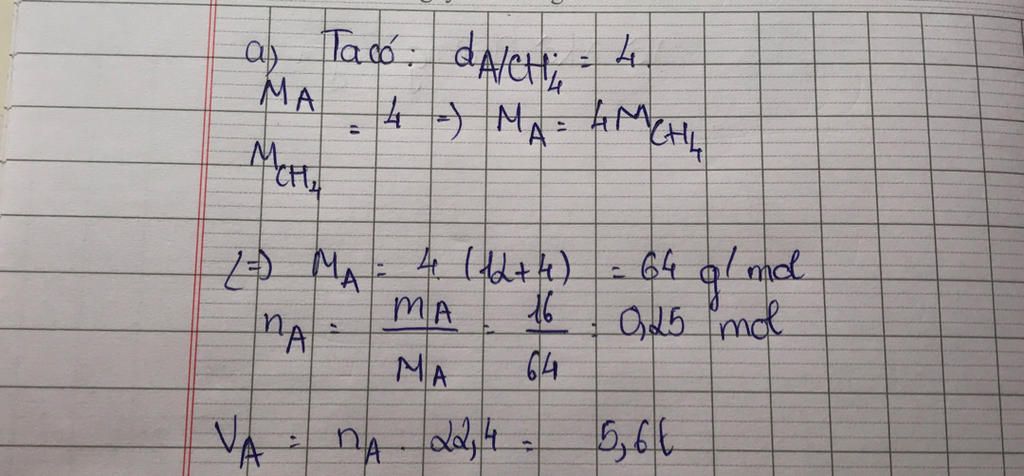 a) Ta có: d A/CH4 = 4.
MA/MCH4 = 4 => MA = 4MCH4
<=> MA = 4 (12+4) = 64 g/mol
nA = mA/MA = 16/64 = 0,25 mol
VA = nA . 22,4 = 5,6l